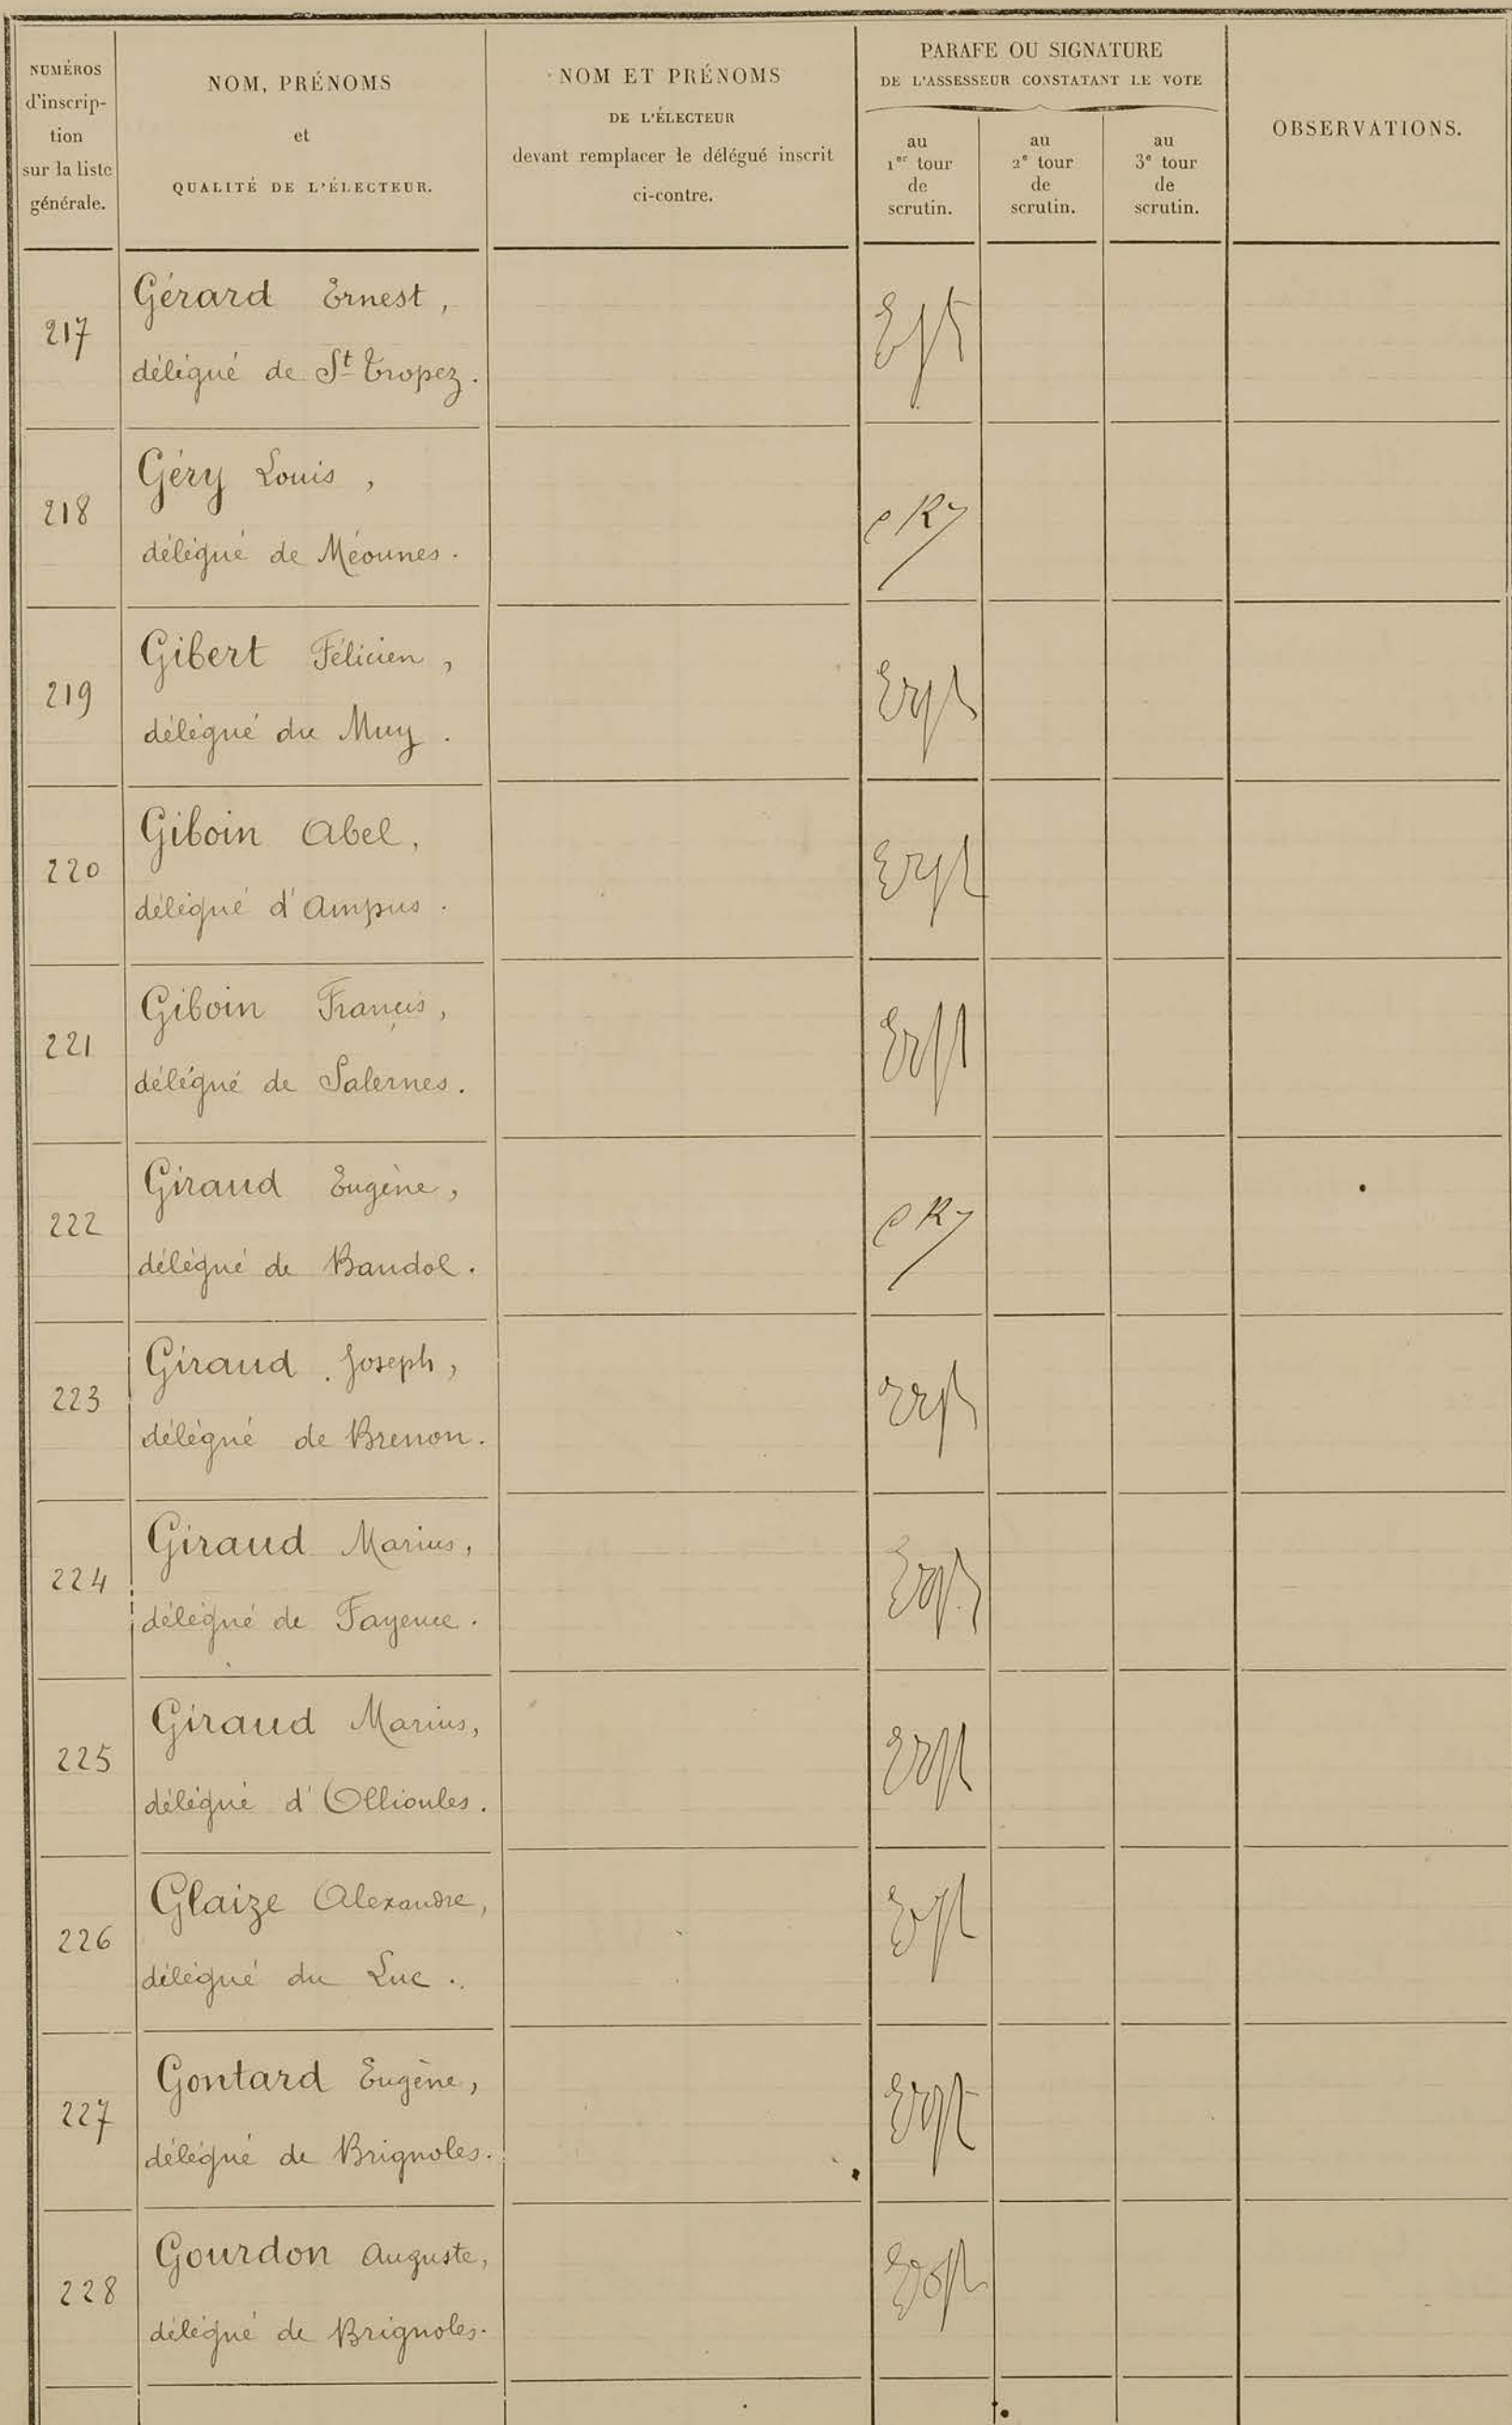 NUMÉROS
d'inscrip-
tion
sur la liste
générale.
NOM, PRÉNOMS
et
QUALITÉ DE L'ÉLECTEUR.
NOM ET PRÉNOMS
DE L'ÉLECTEUR
devant remplacer le délégué inscrit
ci-contre.
PARAFE OU SIGNATURE
DE L'ASSESSEUR CONSTATANT LE VOTE
au
1er tour
de
scrutin.
au
2e tour
de
scrutin.
au
3e tour
de
scrutin.
OBSERVATIONS.
217
Gérard Ernest,
délégué de St Tropez.
218
Géry Louis,
délégué de Méounes.
219
Gibert Félicien,
délégué du Muy.
220
Giboin Abel,
délégué d'Ampus.
221
Giboin Francis,
délégué de Salernes.
222
Giraud Eugène,
délégué de Bandol.
223
Giraud Joseph,
délégué de Brenon.
224
Giraud Marius,
délégué de Fayence.
225
Giraud Marius,
délégué d'Ollioules.
226
Glaize Alexandre,
délégué du Luc.
227
Gontard Eugène,
délégué de Brignoles.
228
Gourdon Auguste,
délégué de Brignoles.